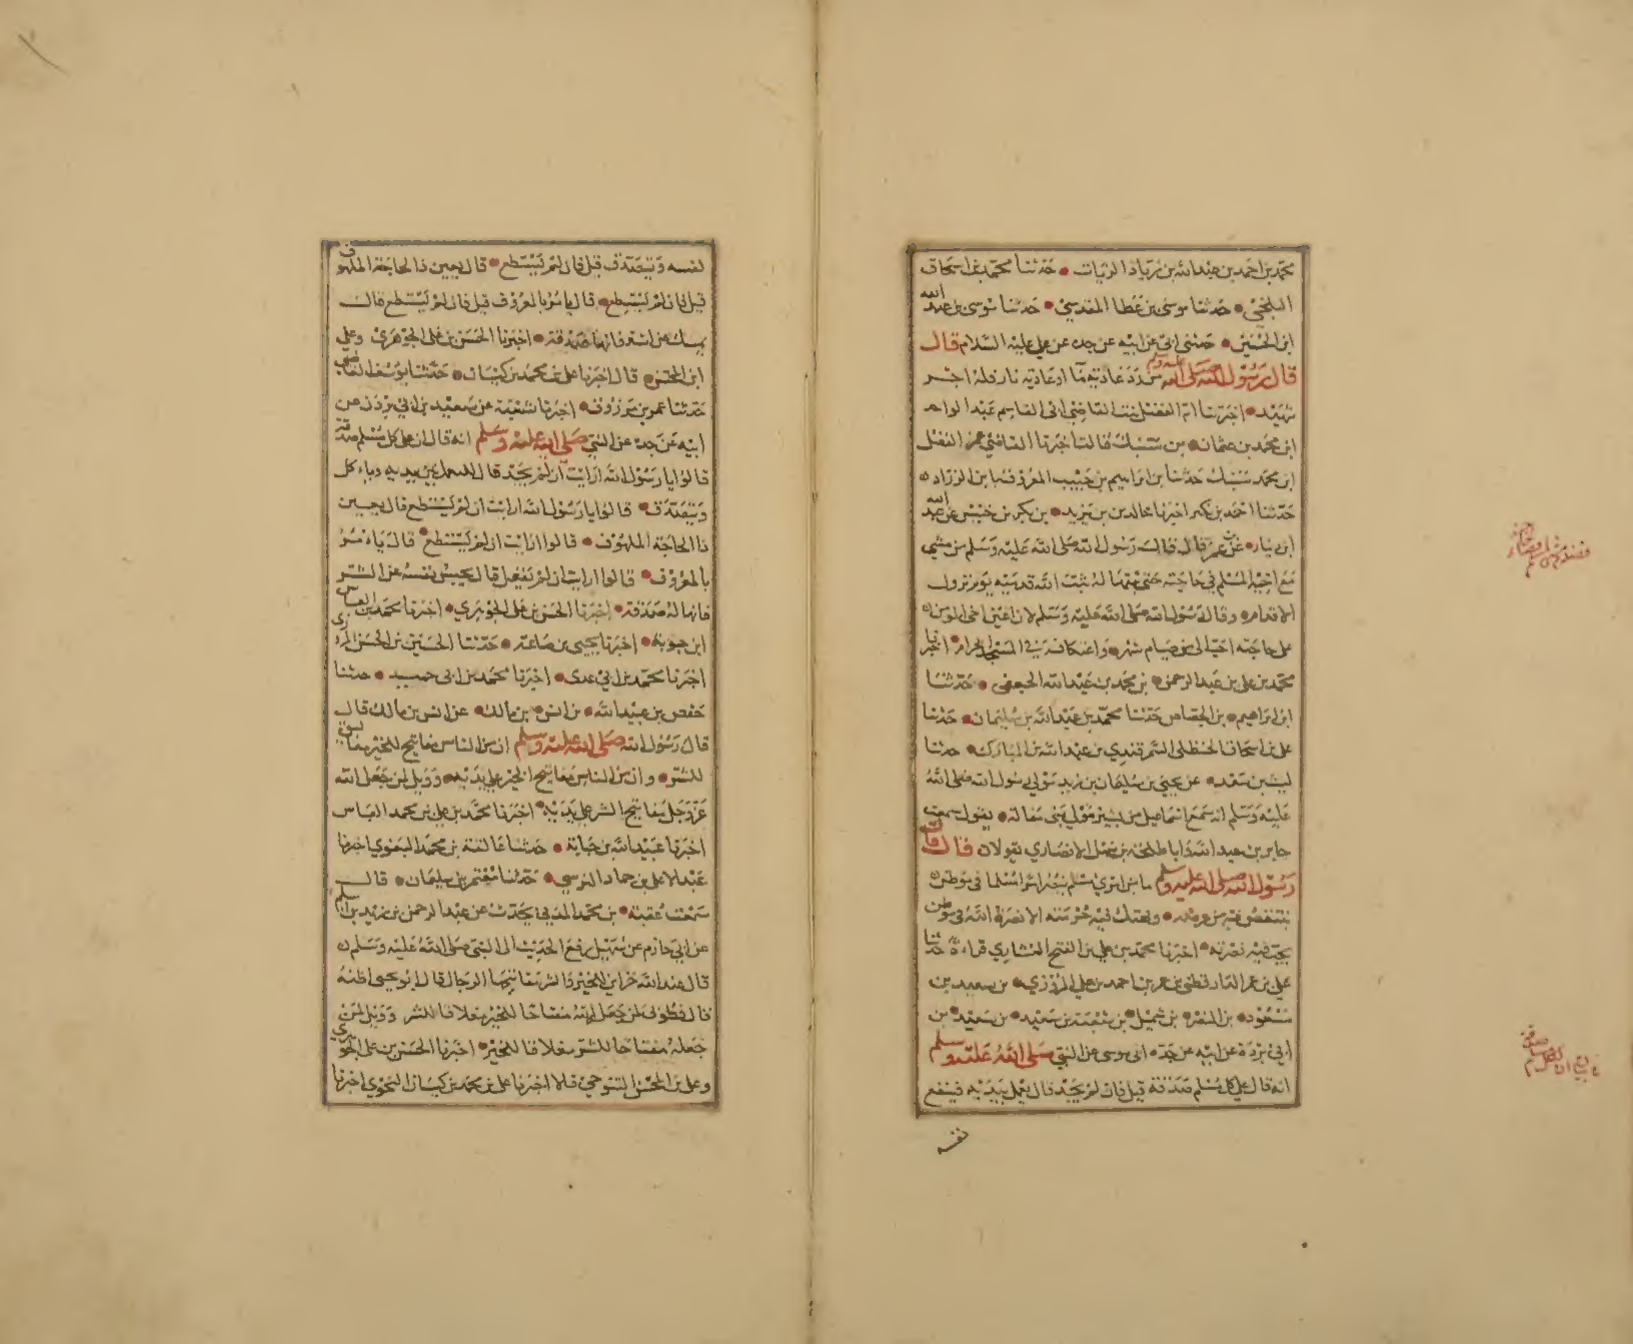 محمد بن احمد بن عبد الله بن زياد الزيات حدثنا محمد بن اسحاق
البلخي حدثنا موسى بن عطا المقدسي حدثنا موسى بن عبد الله
ابن الحسين حدثني ابي عن ابيه عن جده عن علي عليه السلام قال
قال رسول الله صلى الله عليه وسلم من رد عادية ما او عادية نار فله اجر
شهيد اخبرتنا ام الفضل بنت القاضي ابي القاسم عبد الواحد
ابن محمد بن عثمان بن سنبك قالت اخبرنا القاضي عمر الفضل
ابن محمد سنبك حدثنا بن ابراهيم بن حبيب المعروف بابن الزراد
حدثنا احمد بن بكر اخبرنا خالد بن يزيد بن بكر بن خنيس عن عبد الله
ابن دينار عن عمر قال قال رسول الله صلى الله عليه وسلم من مشى
مع اخيه المسلم في حاجته حتى يتمها له ثبت الله قدميه يوم تزول
الاقدام وقال رسول الله صلى الله عليه وسلم لان اعين اخي المومن
على حاجته احب الى من صيام شهر واعتكافه في المسجد الحرام اخبرنا
محمد بن علي بن عبد الرحمن بن محمد بن عبد الله الجعفي حدثنا
ابن ابراهيم بن الجصاص حدثنا محمد بن عبد الله بن سليمان حدثنا
علي بن اسحاق الحنظلي السمرقندي بن عبد الله بن المبارك حدثنا
ليث بن سعد عن يحيى بن سليمان بن زيد مولى رسول الله صلى الله
عليه وسلم انه سمع اسماعيل بن بشير مولى بني مغالة يقول سمعت
جابر بن عبد الله وابا طلحة بن سهل الانصاري يقولان قال قال
رسول الله صلى الله عليه وسلم ما من امرئ مسلم ينصر امرا مسلما في موطن
ينتقص فيه من عرضه وينتهك فيه حرمته الا نصره الله في موطن
يحب فيه نصرته اخبرنا محمد بن علي بن الفتح العشاري قراءة حدثنا
علي بن عمر الدارقطني بن عمر بن احمد بن علي المروزي بن سعيد بن
مسعود بن النضر بن شميل بن شعبة بن سعيد بن سعيد بن
ابي بردة عن ابيه عن جده ابي موسى عن النبي صلى الله عليه وسلم
انه قال على كل مسلم صدقة قيل فان لم يجد قال يعمل بيديه فينفع
نفسه
نفسه ويتصدق قيل فان لم يستطع قال يعين ذا الحاجة الملهوف
قيل فان لم يستطع قال يامر بالمعروف قيل فان لم يستطع قال
يمسك عن الشر فانها صدقة اخبرنا الحسن بن علي الجوهري وعلي
ابن المحسن قال اخبرنا علي بن محمد بن كيسان حدثنا يوسف القاضي
حدثنا عمر بن مرزوق اخبرنا شعبة عن سعيد بن ابي بردة عن
ابيه عن جده عن النبي صلى الله عليه وسلم انه قال ان على كل مسلم صدقة
قالوا يا رسول الله ارايت ان لم يجد قال يعمل بيديه وياكل
ويتصدق قالوا يا رسول الله ارايت ان لم يستطع قال يعين
ذا الحاجة الملهوف قالوا ارايت ان لم يستطع قال يامر
بالمعروف قالوا ارايت ان لم يفعل قال يحبس نفسه عن الشر
فانها له صدقة اخبرنا الحسن بن علي الجوهري اخبرنا محمد بن العباس
ابن حيويه اخبرنا يحيى بن صاعد حدثنا الحسين بن الحسن المروزي
اخبرنا محمد بن ابي عدي اخبرنا محمد بن ابي حميد حدثنا
حفص بن عبيد الله بن انس بن مالك عن انس بن مالك قال
قال رسول الله صلى الله عليه وسلم ان من الناس مفاتيح للخير مغاليق
للشر وان من الناس مفاتيح الخير على يديه وويل لمن جعل الله
عز وجل مفاتيح الشر على يديه اخبرنا محمد بن علي بن محمد العباس
اخبرنا عبيد الله بن حبابة حدثنا عبد الله بن محمد البغوي اخبرنا
عبد الاعلى بن حماد النرسي حدثنا معتمر بن سليمان قال
سمعت عقبة بن محمد المدني يحدث عن عبد الرحمن بن زيد بن اسلم
عن ابي حازم عن سهل رفع الحديث الى النبي صلى الله عليه وسلم
قال عند الله خزائن الخير والشر مفاتيحها الرجال قال ابو يحيى اظنه
قال فطوبى لمن جعل الله مفتاحا للخير مغلاقا للشر وويل لمن
جعله مفتاحا للشر مغلاقا للخير اخبرنا الحسن بن علي الجوهري
وعلي بن المحسن التنوخي قالا اخبرنا علي بن محمد بن كيسان النحوي اخبرنا